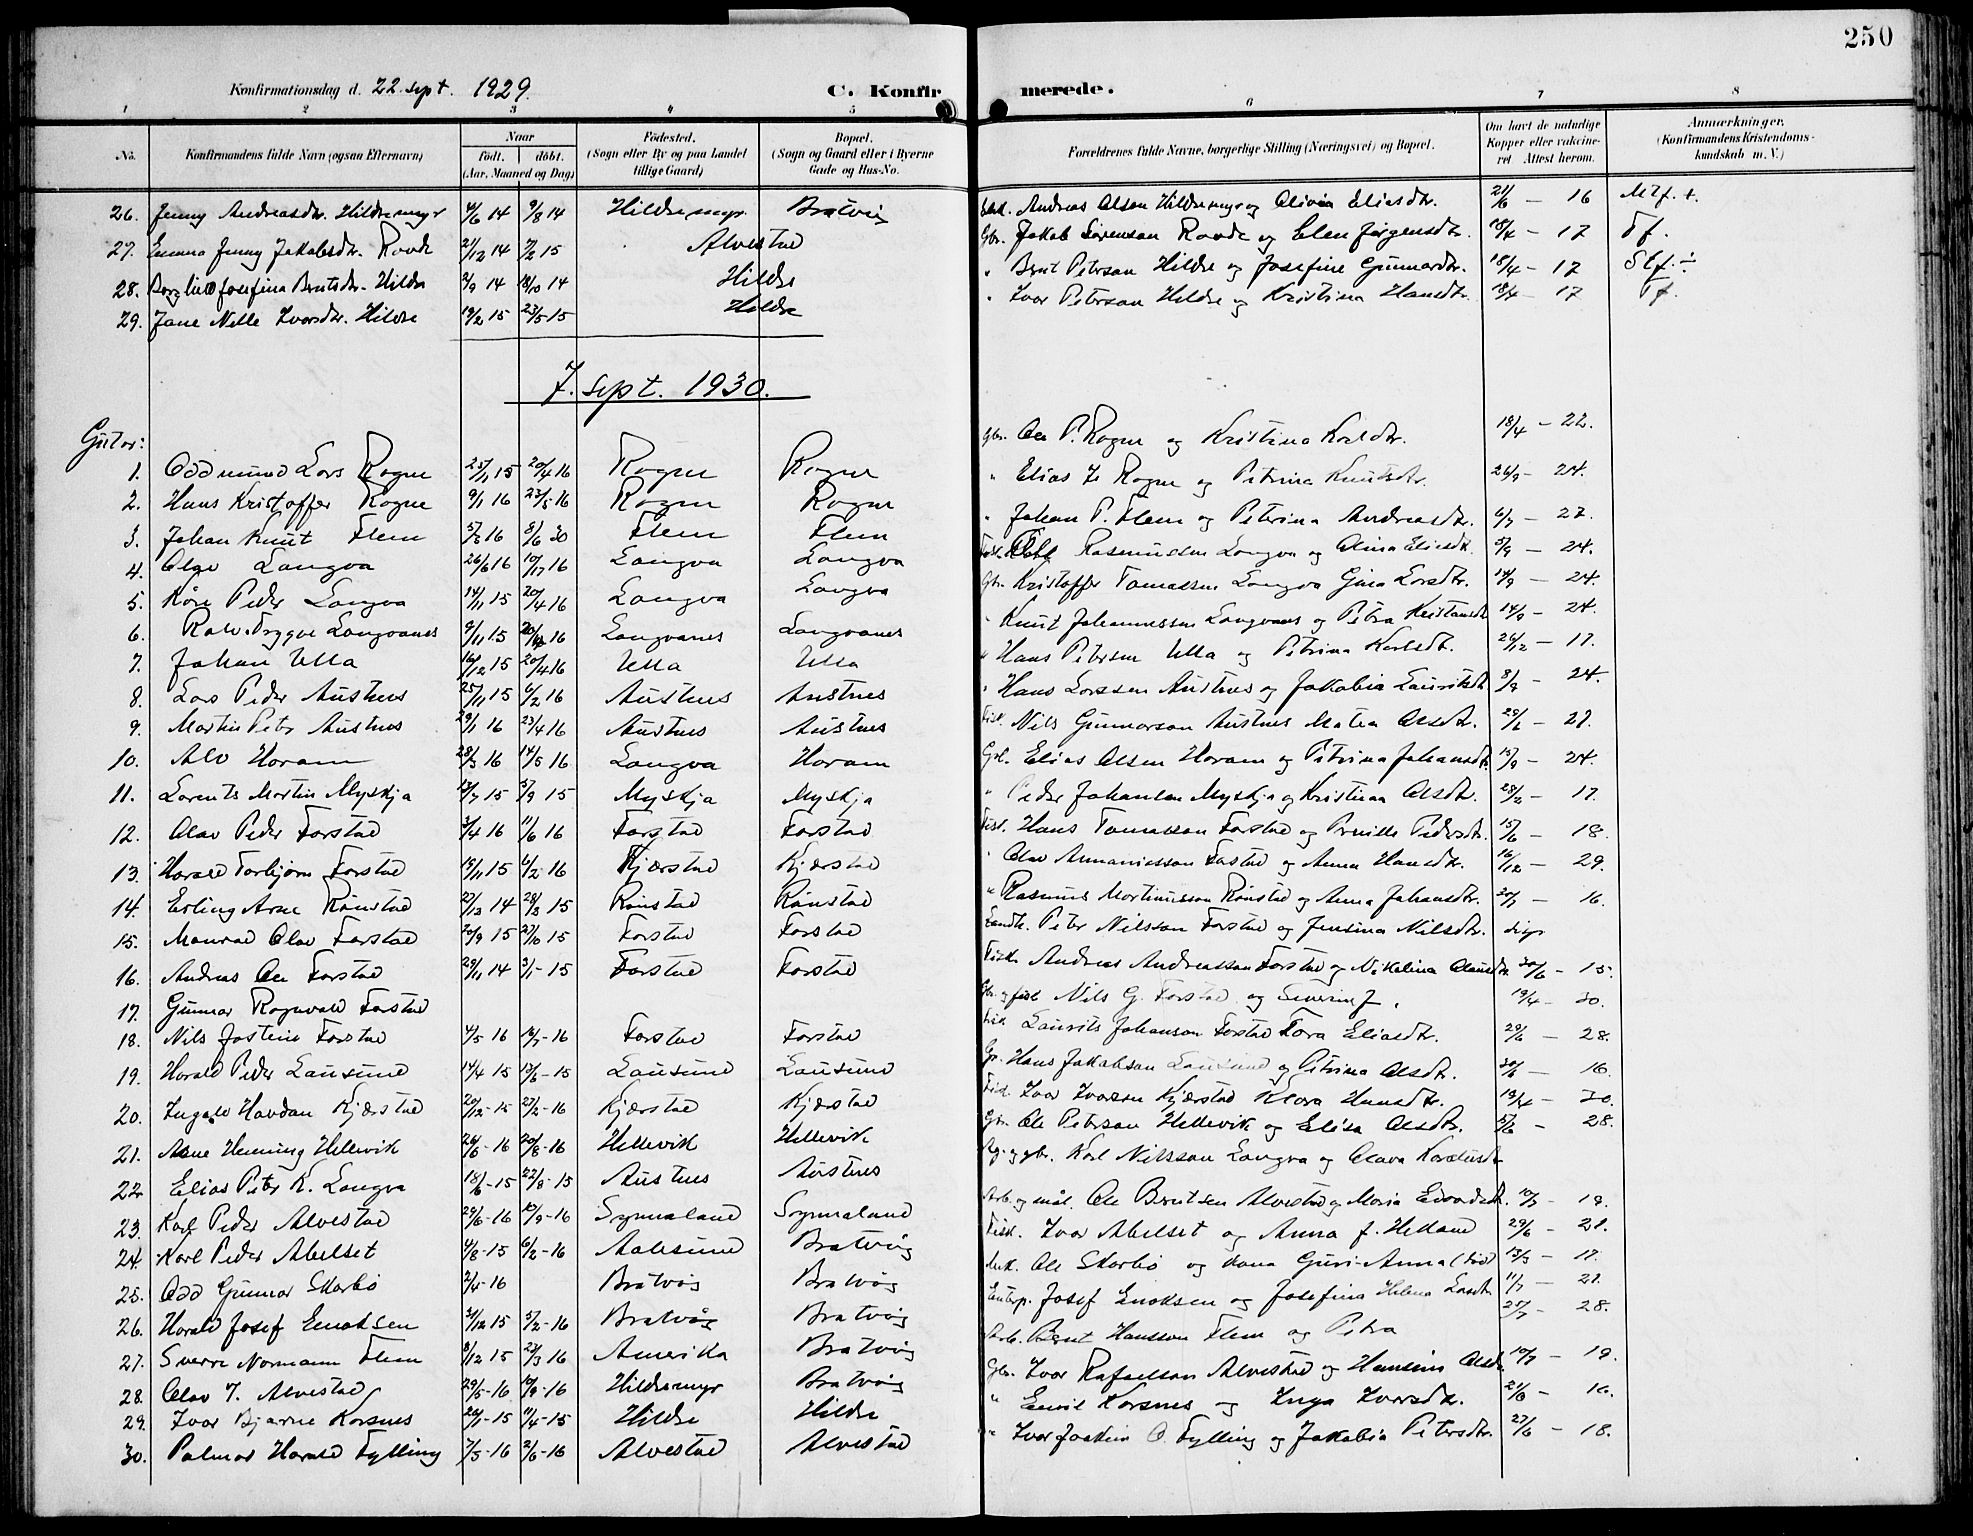 250
Konfirmationsdag d. 22. sept. 1929. C. Konfirmerede.
1 2 3 4 5 6 7 8
No. Konfirmandens fulde Navn (ogsaa Efternavn) Naar født. døbt. (Aar, Maaned og Dag) Fødested. (Sogn eller By og paa Landet tillige Gaard) Bopæl. (Sogn og Gaard eller i Byerne Gade og Hus-No. Forældrenes fulde Navne, borgerlige Stilling (Næringsvei) og Bopæl. Om havt de naturlige Kopper eller vakcineret. Attest herom. Anmærkninger. (Konfirmandens Kristendomskundskab m. V.)
26. Jenny Andreasdtr. Hildremyr 4/6 14 9/8 14 Hildremyr Bratvåg Andreas Olsen Hildremyr og Olivia Eliasdtr. 21/6 – 16 Mtf. +
27. Emma Jenny Jakobsdtr. Rovde 21/12 14 7/2 15 Alvestad Gbr. Jakob Sørensen Rovde og Elen Jørgensdtr. 18/4 – 17 Tf.
28. Borghild Josefina Berntsdtr. Hildre 2/9 14 18/10 14 Hildre " Bernt Peterson Hildre og Josefine Gunnardtr. 18/4 – 17 Stf. ÷
29. Jane Nelle Ivarsdtr. Hildre 19/2 15 23/5 15 Hildre " Ivar Peterson Hildre og Kristina Hansdtr. 18/4 – 17 Tf.
7. sept. 1930.
Gutar:
1. Oddmund Lars Rogne 25/11 15 20/4 16 Rogne Rogne Gbr. Ole P. Rogne og Kristina Karlsdtr. 18/4 – 22.
2. Hans Kristoffer Rogne 9/1 16 23/5 16 Rogne Rogne " Elias J. Rogne og Petrina Knutsdtr. 26/9 – 24.
3. Johan Knut Flem 5/3 16 8/6 30 Flem Flem " Johan P. Flem og Peterina Andreasdtr. 6/7 – 27.
4. Olav Longva 26/6 16 Longva Longva Rasmussen Longva og Olina Eliasdtr. 5/9 – 24.
5. Kåre Peder Longva 14/11 15 20/4 16 Longva Longva Gbr. Kristoffer Tomassen Longva Gina Larsdtr. 14/9 – 24.
6. Trygve Longvanes 9/11 15 16 Longvanes Longvanes " Knut Johannessen Longvanes og Petra Kristansdtr. 14/9 – 24.
7. Johan Ulla 16/12 15 20/4 16 Ulla Ulla " Hans Petersen Ulla og Petrina Karlsdtr. 26/12 – 17.
8. Lars Peder Austnes 25/11 15 6/2 16 Austnes Austnes " Hans Larssen Austnes og Jakobia Lauritsdtr. 8/9 – 24.
9. Martin Peter Austnes 29/1 16 23/4 16 Austnes Austnes Fisk. Nils Gunnarson Austnes Matea Olsdtr. 29/6 – 21.
10. Alv Haram 28/3 16 14/5 16 Longva Haram Elias Olsen Haram og Petrina Johansdtr. 15/9 – 24.
11. Lorents Martin Myskja 13/7 15 5/9 15 Myskja Myskja " Peder Johansen Myskja og Kristina Olsdtr. 28/2 – 17.
12. Olav Peder Farstad 3/4 16 11/6 16 Farstad Farstad Fisk. Hans Tomasson Farstad og Pernille Pedersdtr. 15/6 – 18.
13. Harald Torbjørn Farstad 15/11 15 6/2 16 Kjærstad Kjærstad " Olav Annaniasson Farstad og Anna Hansdtr. 16/12 – 29.
14. Erling Arne Rønstad 27/12 14 28/3 15 Rønstad Rønstad " Rasmus Martinusson Rønstad og Anna Johansdtr. 20/7 – 16.
15. Monrad Olav Farstad 20/9 15 27/10 15 Farstad Farstad Landh. Peter Nilsson Farstad og Jensina Nilsdtr. disp
16. Andreas Ole Farstad 29/11 14 3/1 – 15 Farstad Farstad Fisk. Andreas Andreasson Farstad og Nikolina Olausdtr. 30/6 – 15.
17. Gunnar Ragnvald Farstad Gbr. og fisk Nils G. Farstad og Severin J. 19/4 – 30.
18. Nils Jostein Farstad 4/5 – 16 16/7 – 16 Farstad Farstad Fisk Laurits Johanson Farstad Tora Eliasdtr. 29/6 – 28.
19. Harald Peder Lausund 14/4 15 13/6 – 15 Lausund Lausund Hans Jakobson Lausund og Petrina Olsdtr. 30/6 – 16.
20. Ingolv Havdan Kjærstad 20/12 – 15 27/2 – 16 Kjærstad Kjærstad Fisk. Ivar Ivarson Kjærstad Klara Hansdtr. 19/4 – 30.
21. Arne Henning Hellevik 26/6 – 16 20/8 – 16 Hellevik Hellevik Gbr. Ole Peterson Hellevik og Elisa Olsdtr. 5/6 – 28.
22 Elias Peter K. Longva 18/6 – 15 22/8 – 15 Austnes Austnes Karl Nilsson Longva og Olava Kornelusdtr
23. Karl Peder Alvestad 29/6 – 16 Synnaland Synnaland Arb. og mål. Ole Berntsen Alvestad og Maria Edvardsdtr. 10/7 – 19.
24. Karl Peder Abelset 4/8 – 15 6/2 – 16 Aalesund Bratvåg Fisk. Ivar Abelset og Anna f. Helland 29/6 – 21.
25. Odd Gunnar Skarbø 2/4 – 16 Bratvåg Bratvåg Ole Skarbø og kona Guri-Anna (død) 13/3 – 17.
26. Harald Josef Enoksen 31/12 15 5/2 – 16 Bratvåg Bratvåg Enterp. Josef Enoksen og Josefina Helena Larsdtr 11/7 – 21.
27. Sverre Normann Flem 8/12 15 27/3 16 Amerika Bratvåg Arb. Bernt Hansson Flem og Petra 25/7 – 28.
28. Olav I. Alvestad 29/5 – 16 10/9 – 16 Hildremyr Bratvåg Gbr. Ivar Rafaelson Alvestad og Hansine Olsdtr. 10/7 – 19.
29. Ivar Bjarne Korsnes 20/1 – 15 11/4 – 15 Hildre Hildre " Emil Korsnes og Inga Ivarsdtr. 21/6 – 16.
30. Palmar Harald Fylling 7/5 – 16 2/6 – 16 Alvestad Alvestad " Ivar Joakim O. Fylling og Jakobia Petersdtr. 27/6 – 18.